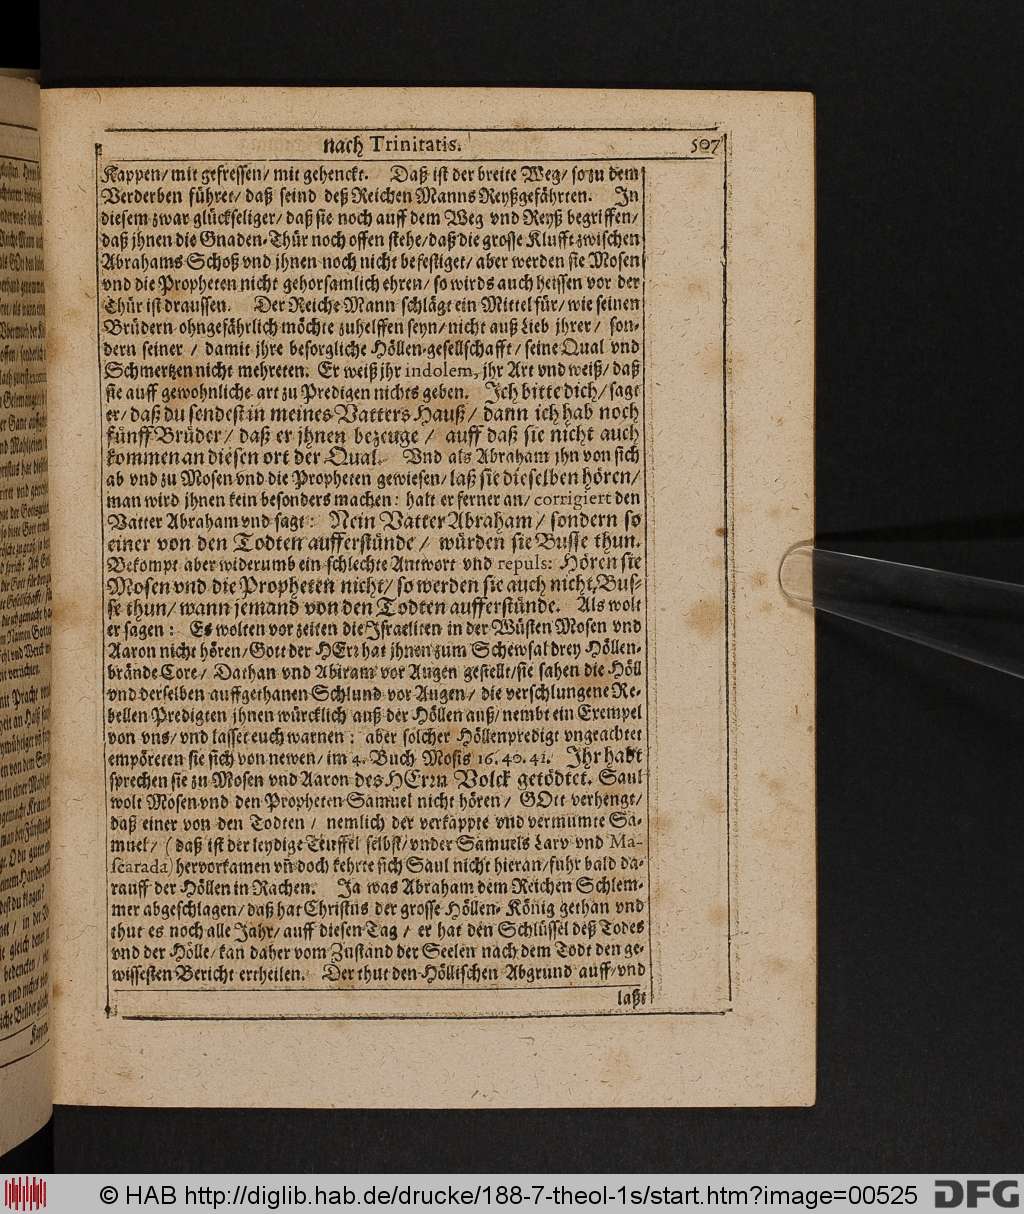 nach Trinitatis. 507
Kappen/ mit gefressen/ mit gehenckt. Daß ist der breite Weg/ so zu dem
Verderben führet/ daß seind deß Reichen Manns Reyßgefährten. In
diesem zwar glückseliger/ daß sie noch auff dem Weg vnd Reyß begriffen/
daß jhnen die Gnaden-Thür noch offen stehe/ daß die grosse Klufft zwischen
Abrahams Schoß vnd jhnen noch nicht befestiget/ aber werden sie Mosen
vnd die Propheten nicht gehorsamlich ehren/ so wirds auch heissen vor der
Thür ist draussen. Der Reiche Mann schlägt ein Mittel für/ wie seinen
Brüdern ohngefährlich möchte zuhelffen seyn/ nicht auß Lieb jhrer/ son-
dern seiner / damit jhre besorgliche Höllen-gesellschafft/ seine Qual vnd
Schmertzen nicht mehreten. Er weiß jhr indolem, jhr Art vnd weiß/ daß
sie auff gewohnliche art zu Predigen nichts geben. Ich bitte dich/ sagt
er/ daß du sendest in meines Vatters Hauß/ dann ich hab noch
fünff Brüder/ daß er jhnen bezeuge / auff daß sie nicht auch
kommen an diesen ort der Qual. Vnd als Abraham jhn von sich
ab vnd zu Mosen vnd die Propheten gewiesen/ laß sie dieselben hören/
man wird jhnen kein besonders machen: halt er ferner an/ corrigiert den
Vatter Abraham vnd sagt: Nein Vatter Abraham/ sondern so
einer von den Todten aufferstünde/ würden sie Busse thun.
Bekompt aber widerumb ein schlechte Antwort vnd repuls: Hören sie
Mosen vnd die Propheten nicht/ so werden sie auch nicht Bus-
se thun/ wann jemand von den Todten aufferstünde. Als wolt
er sagen: Es wolten vor zeiten die Israeliten in der Wüsten Mosen vnd
Aaron nicht hören/ Gott der HErr hat jhnen zum Schewsal drey Höllen-
brände Core/ Dathan vnd Abiram vor Augen gestellt/ sie sahen die Höll
vnd derselben auffgethanen Schlund vor Augen/ die verschlungene Re-
bellen Predigten jhnen würcklich auß der Höllen auß/ nembt ein Exempel
von vns/ vnd lasset euch warnen: aber solcher Höllenpredigt vngeachtet
empöreten sie sich von newen/ im 4. Buch Mosis 16. 40. 41. Ihr habt
sprechen sie zu Mosen vnd Aaron des HErrn Volck getödtet. Saul
wolt Mosen vnd den Propheten Samuel nicht hören/ GOtt verhengt/
daß einer von den Todten/ nemlich der verkappte vnd vermumte Sa-
muel/ (daß ist der leydige Teuffel selbst/ vnder Samuels Larv vnd Ma-
scarada) hervorkamen vñ doch kehrte sich Saul nicht hieran/ fuhr bald da-
rauff der Höllen in Rachen. Ja was Abraham dem Reichen Schlem-
mer abgeschlagen/ daß hat Christus der grosse Höllen-König gethan vnd
thut es noch alle Jahr/ auff diesen Tag/ er hat den Schlüssel deß Todes
vnd der Hölle/ kan daher vom Zustand der Seelen nach dem Todt den ge-
wissesten Bericht ertheilen. Der thut den Höllischen Abgrund auff/ vnd
laßt
© HAB http://diglib.hab.de/drucke/188-7-theol-1s/start.htm?image=00525
DFG